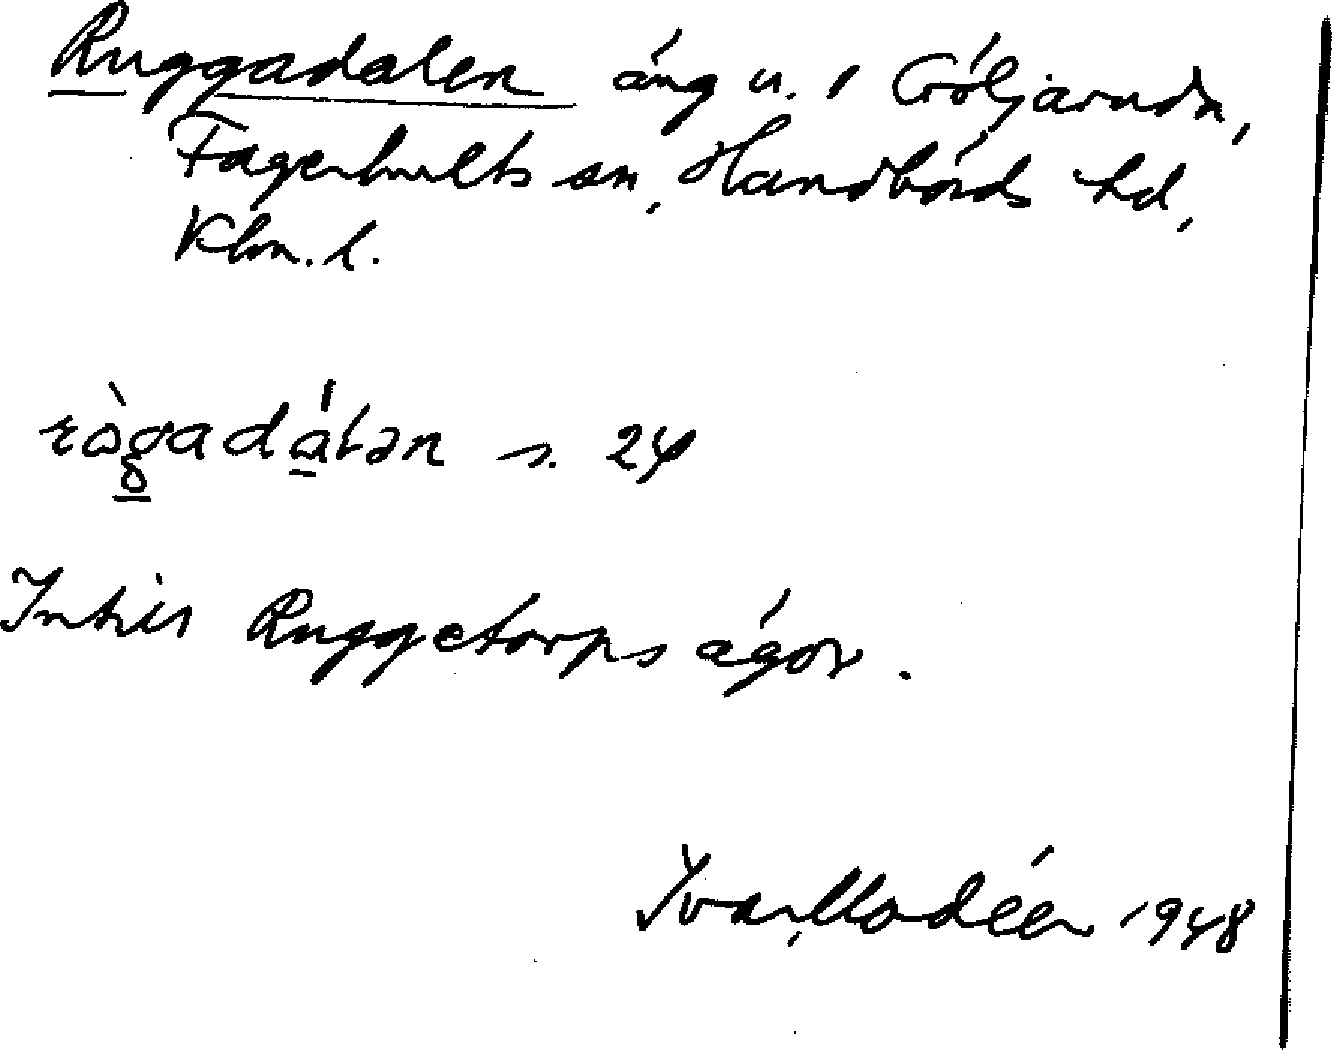 Ruggadalen äng u. 1 Göljaryda,
Fagerhults sn, Handbörds hd,
Klm. l.
ròg̱adɑ́lən s. 24
Intill Ruggetorps ägor.
Ivar Modéer 1948